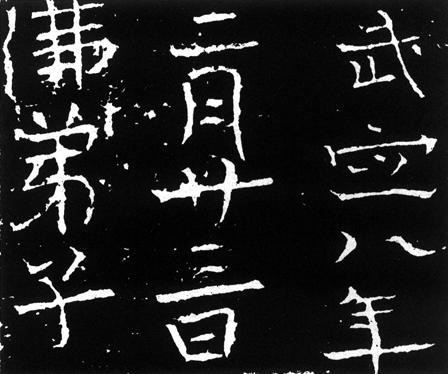 武定八年
二月廿三日
佛弟子